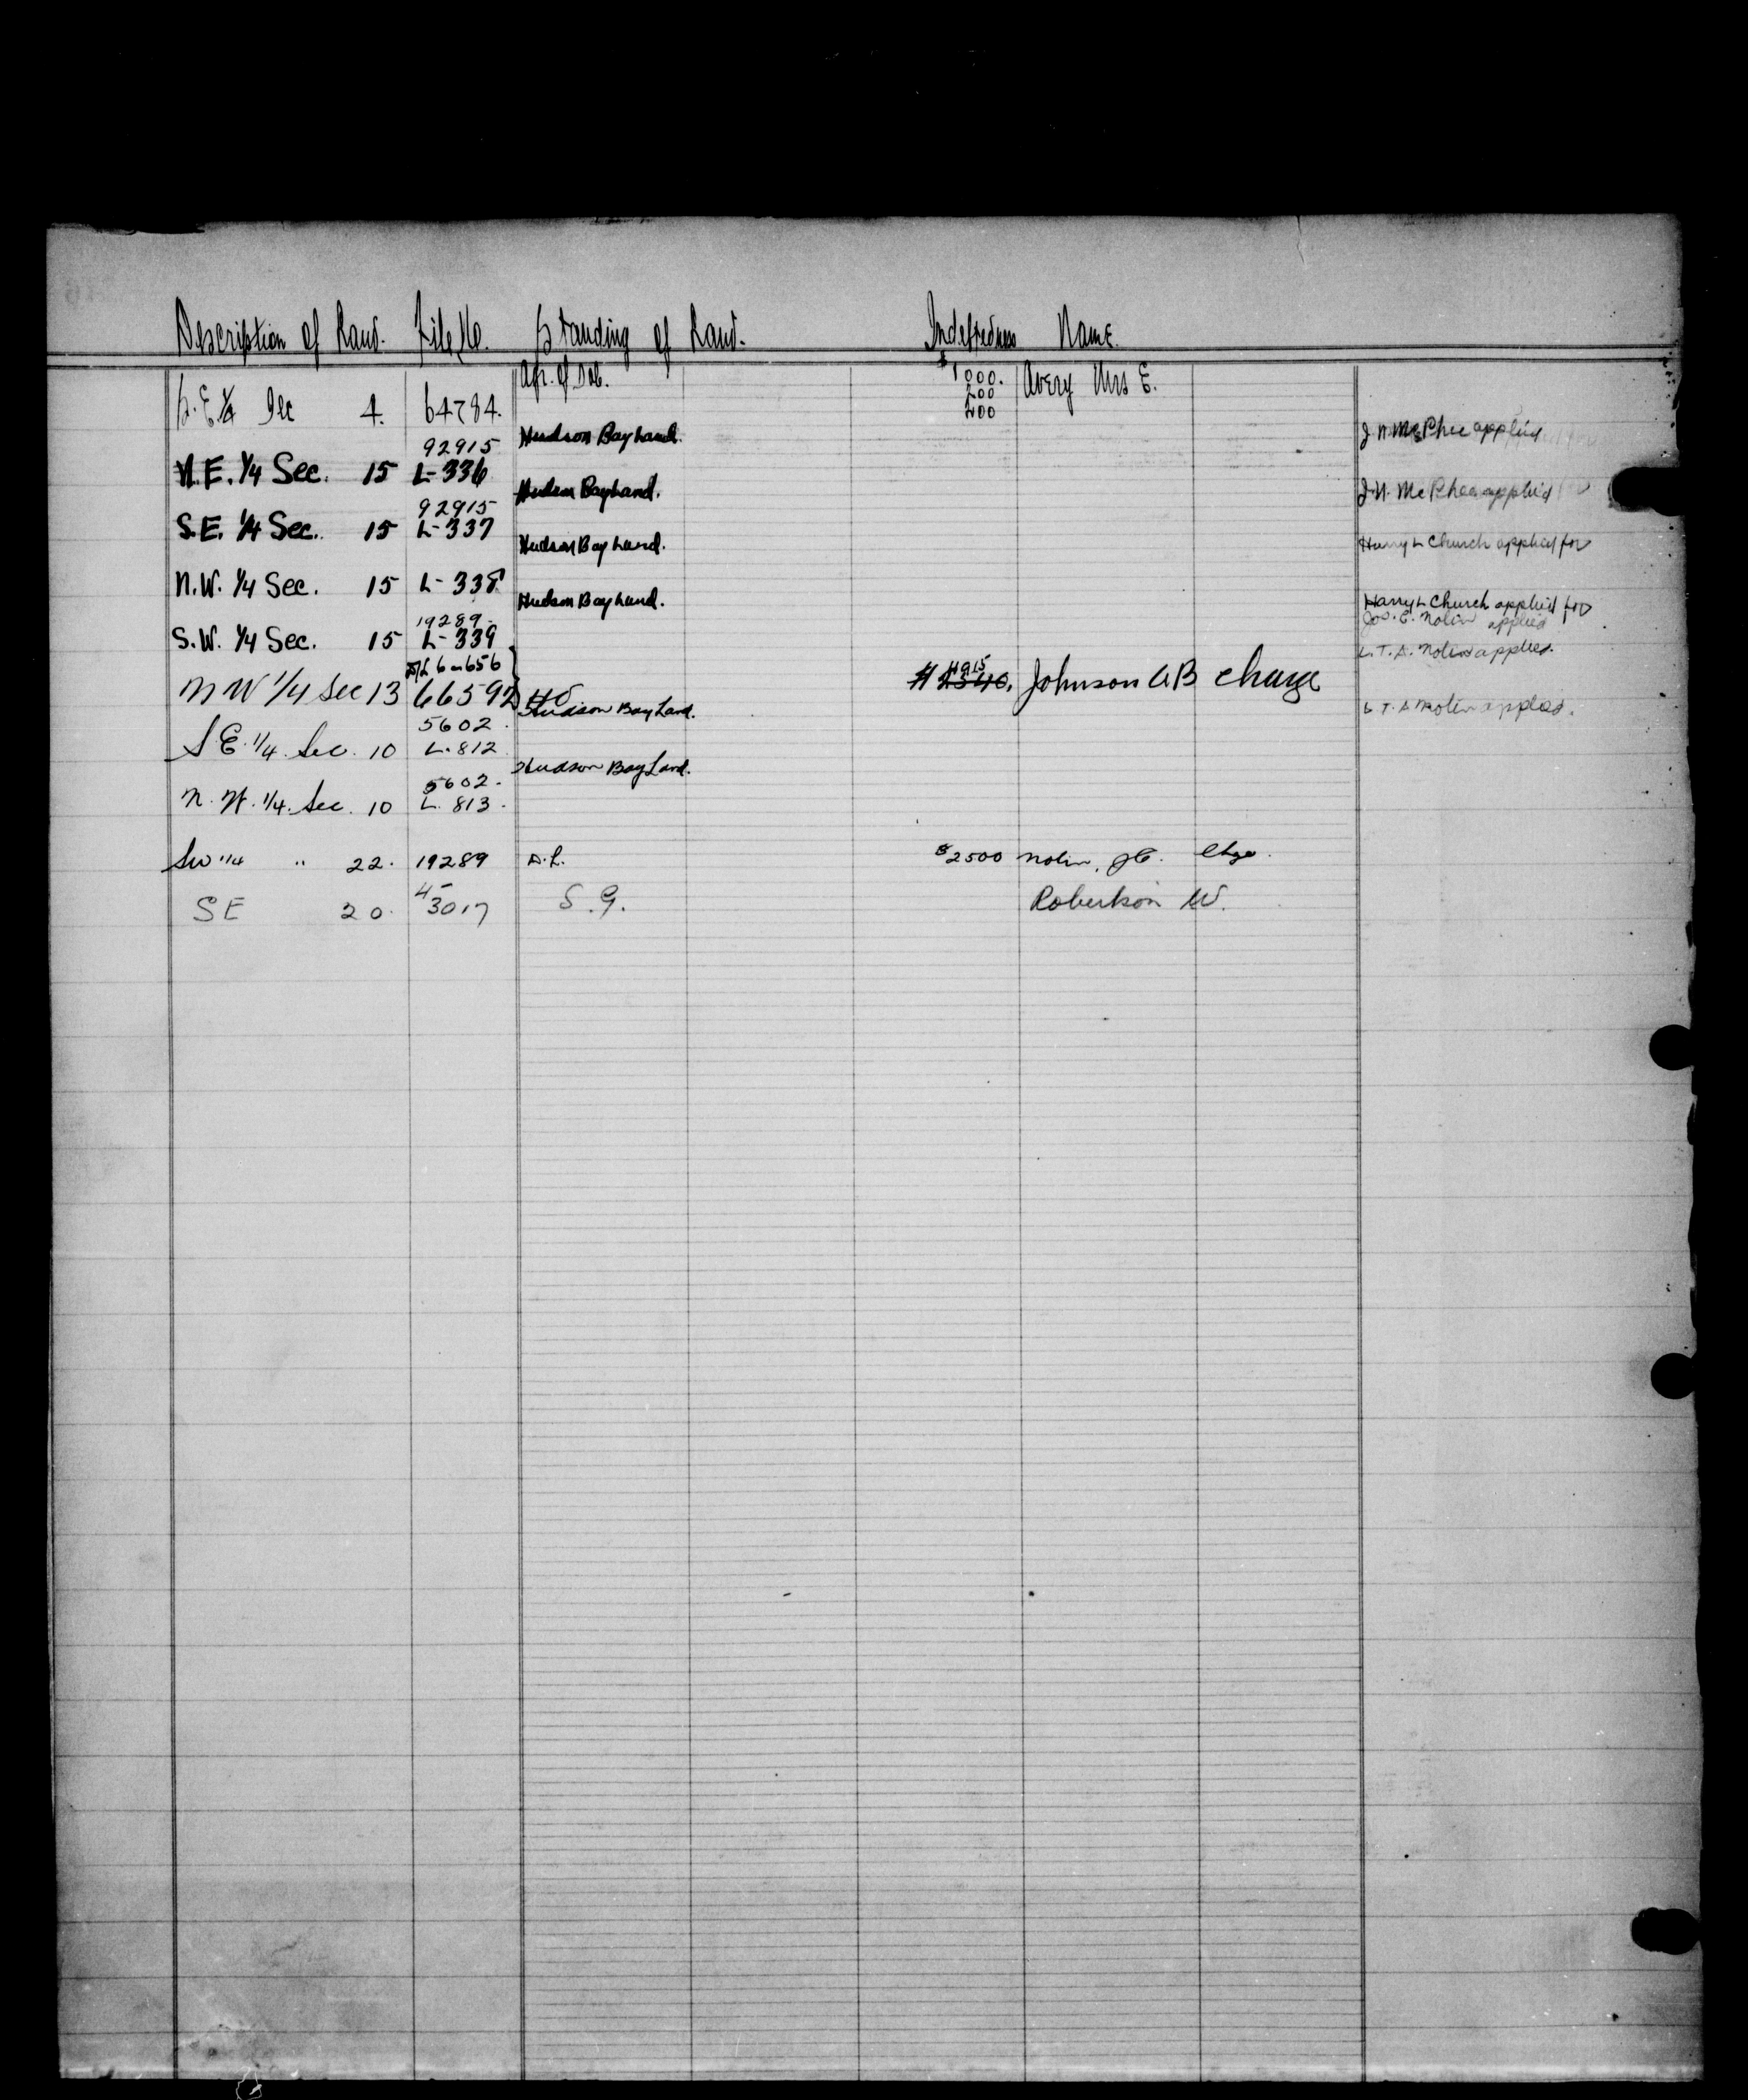 Description of Land. File No. Standing of Land. Indebtedness Name.
S.E. 1/4 Sec 4. 64784. $1000. Avery Mrs E.
200
200
92915 Hudson Bay Land. J.N. McPhee applied
N.E. 1/4 Sec. 15 L-336
92915 Hudson Bay Land. J.N. McPhee applied
S.E. 1/4 Sec. 15 L-337
Hudson Bay Land. Harry L Church applied for
N.W. 1/4 Sec. 15 L-338
Hudson Bay Land. Harry L Church applied for
19289. Jos. E. Nolin applied
S.W. 1/4 Sec. 15 L-339
L.T.A. Nolin applied.
4915
NW 1/4 Sec 13 66592 Johnson AB Charge
Hudson Bay Land. L.T.A Nolin applied.
5602.
S.E. 1/4. Sec. 10 L.812
Hudson Bay Land.
5602.
N.W. 1/4. Sec. 10 L. 813.
SW 1/4 " 22. 19289 $2500 Nolin, J.E. Chge.
45
SE 20. 3017 S.G. Robertson W.